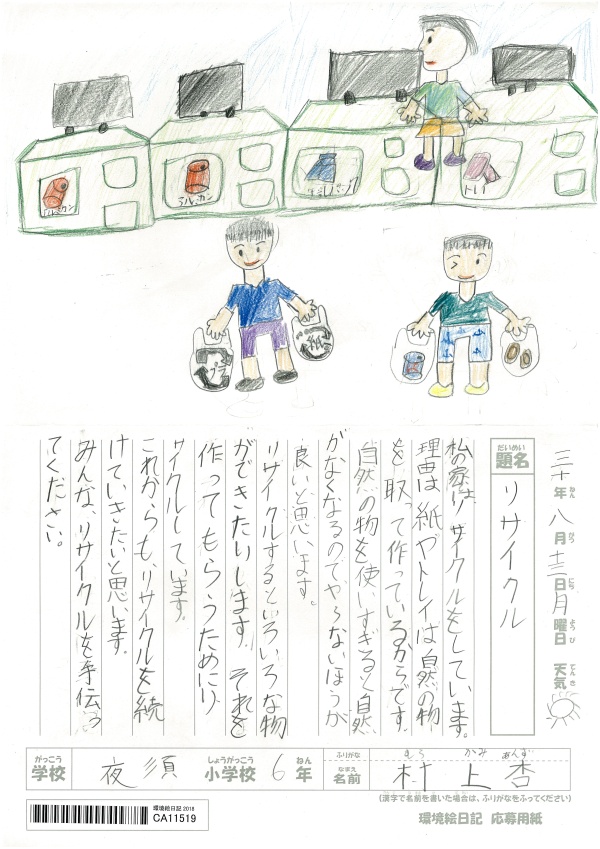 アルミカン
アルミカン
トレイ
プラ
紙
三十年ねん八月がつ十三日にち月曜日ようび 天気てんき
だいめい
題名
リサイクル
私の家はリサイクルをしています。
理由は紙やトレイは自然の物
を取って作っているからです。
自然の物を使いすぎると自然
がなくなるのでやらないほうが
良いと思います。
リサイクルするといろいろな物
ができたりします。それを
作ってもらうためにリ
サイクルしています。
これからも、リサイクルを続
けていきたいと思います。
みんな、リサイクルを手伝っ
てください。
がっこう しょうがっこう ねん
学校 夜須 小学校 6年
ふりがな むらかみあんず
なまえ
名前 村上杏
(漢字で名前を書いた場合は、ふりがなをふってください)
環境絵日記2018
CA11519
環境絵日記 応募用紙